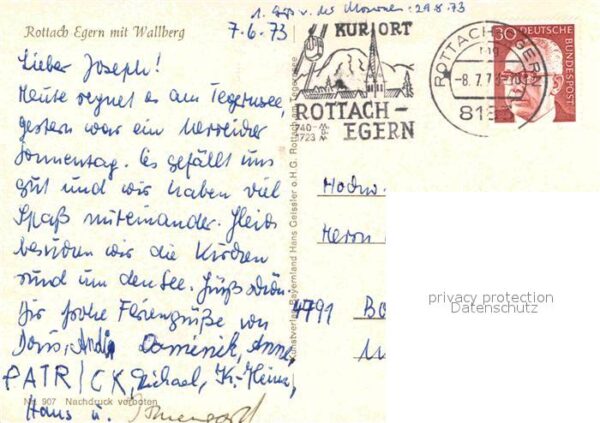 1. Gruß v. des Monats: 29.8.73
7-6.73
Rottach Egern mit Wallberg
Lieber Joseph!
Heute regnet es am Tegernsee,
gestern war ein herrlicher
Sonnentag. Es gefällt uns
gut und wir haben viel
Spaß miteinander. Gleich
besuchen wir die Kirchen
rund um den See.
Dir frohe Feriengrüße von
Doris, Andi, Dominik, Anne,
PATRICK, Michael, K.-Heinz,
Hans u.
Nr. 907 Nachdruck verboten
Kunstverlag Bayernland Hans Geissler o.H.G. Rottach am Tegernsee
KURORT
ROTTACH-
EGERN
740-
1723 m
ROTTACH-EGERN
-8.7.73
8183
30
DEUTSCHE
BUNDESPOST
Hochw.
Herrn
4791
privacy protection
Datenschutz